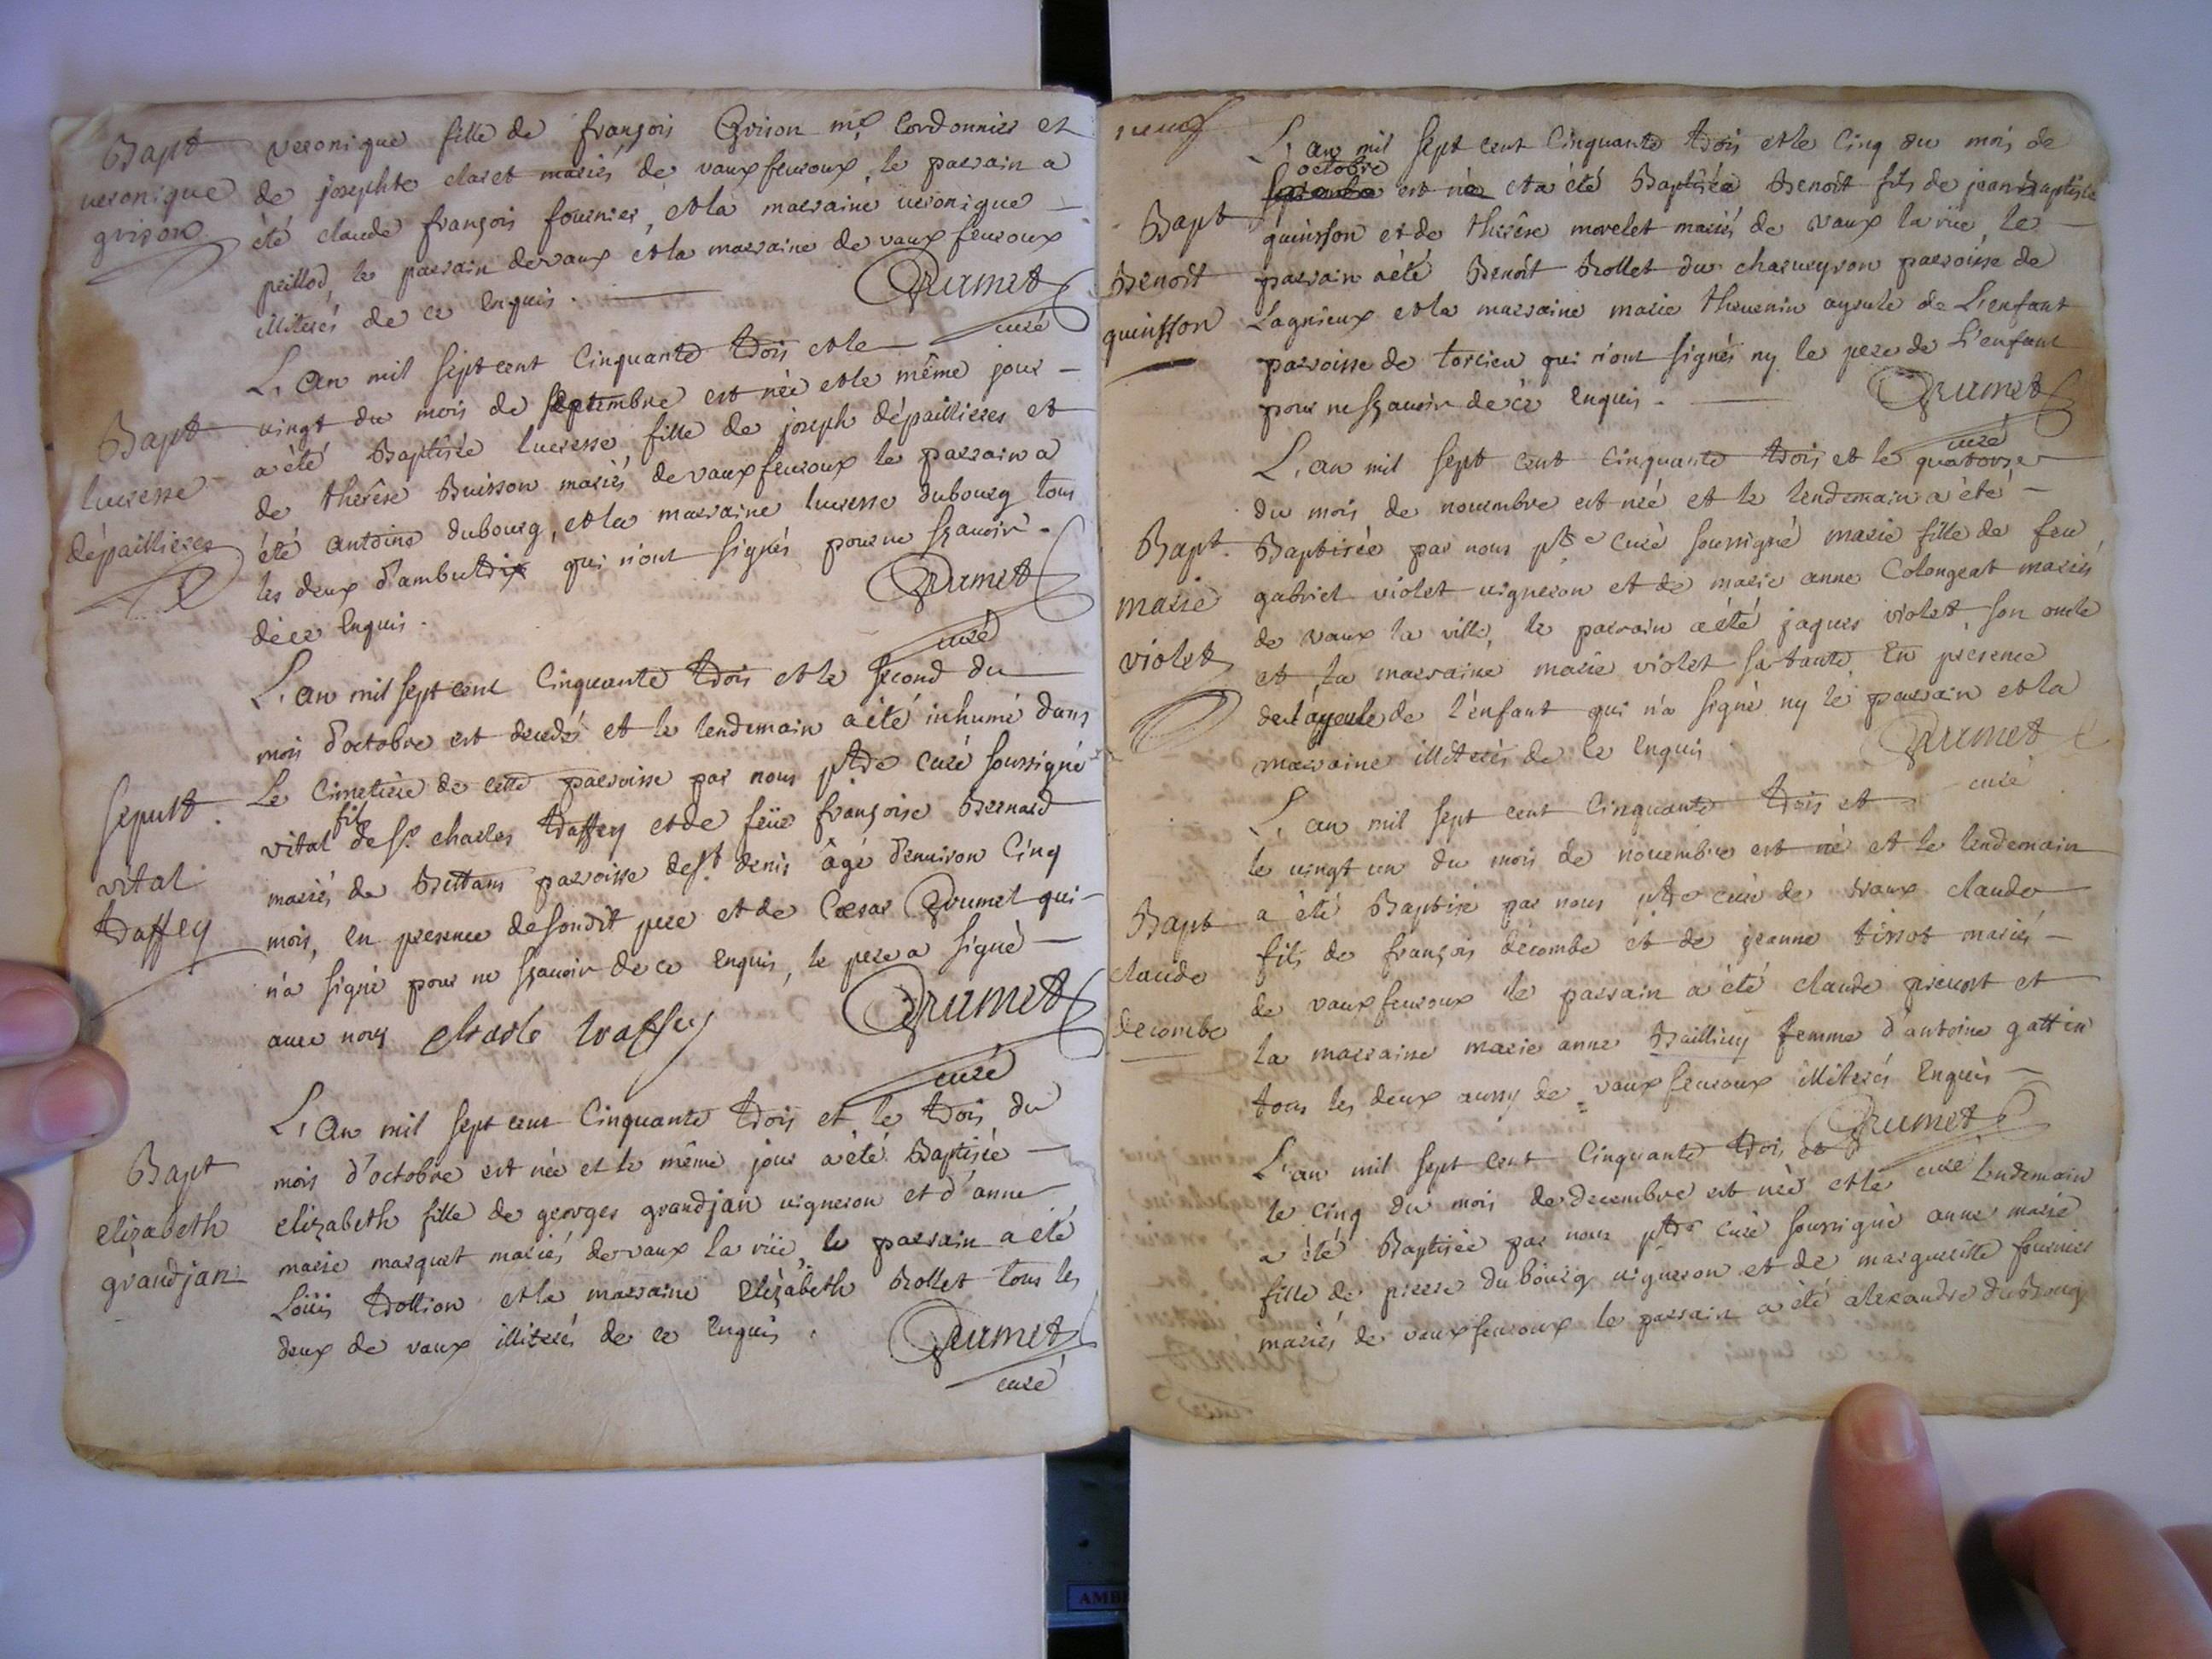 Bapt
veronique
grison
veronique fille de françois Grison me cordonnier et
de josephte claret mariés de vaux fevroux, le parrain a
été claude françois fournier, et la marraine veronique
peillod, le parrain de vaux et la marraine de vaux fevroux
illiterés de ce enquis.
Grumet
curé
Bapt
lucresse
dépaillieres
L'an mil sept cent cinquante trois et le
vingt du mois de septembre est née et le même jour
a été Baptisée lucresse fille de joseph dépaillieres et
de therêse Buisson mariés de vaux fevroux le parrain a
été antoine dubourg, et la marraine lucresse dubourg tous
les deux d'ambutrix qui n'ont signés pour ne sçavoir
de ce enquis.
Grumet
curé
sepult.
vital
traffey
L'an mil sept cent cinquante trois et le second du
mois d'octobre est decedés et le lendemain a été inhumé dans
Le cimetiére de cette parroisse par nous ptre curé soussigné
vital fils de sr. charles traffey et de feüe françoise Bernard
mariés de Bettans parroisse de st. denis âgé d'environ cinq
mois, en presence de sondit pere et de Cœsar Grumet qui
n'a signé pour ne sçavoir de ce enquis, le pere a signé
avec nous charle traffey
Grumet
curé
Bapt
elizabeth
grandjan
L'an mil sept cent cinquante trois et le trois du
mois d'octobre est née et le même jour a été Baptisée
elizabeth fille de georges grandjan vigneron et d'anne
marie marquet mariés de vaux la rüe, le parrain a été
Loüis trollion et la marraine Elizabeth Rollet tous les
deux de vaux illiterés de ce enquis.
Grumet
curé
neuf
Bapt
Benoît
quinsson
L'an mil sept cent cinquante trois et le cinq du mois de
octobre
est né et a été Baptisée Benoît fils de jean Baptiste
quinsson et de therêse morelet mariés de vaux la rüe, le
parrain a été Benoît Rollet du charveyron parroisse de
Lagnieux et la marraine marie thevenin ayeule de L'enfant
parroisse de torcieu qui n'ont signés ny le pere de L'enfant
pour ne sçavoir de ce enquis.
Grumet
curé
Bapt.
marie
violet
L'an mil sept cent cinquante trois et le quatorze
du mois de novembre est née et le lendemain a été
Baptisée par nous ptre curé soussigné marie fille de feu
gabriel violet vigneron et de marie anne Colongeat mariés
de vaux la ville, le parrain a été jaques violet, son oncle
et la marraine marie violet sa tante En présence
de l'ayeule de l'enfant qui n'a signé ny le parrain et la
marraine illiterés de ce enquis
Grumet
curé
Bapt
claude
decombe
L'an mil sept cent cinquante trois et
le vingt un du mois de novembre est né et le lendemain
a été Baptisé par nous ptre curé de vaux claude
fils de françois décombe et de jeanne tissot mariés
de vaux fevroux le parrain a été claude prevost et
la marraine marie anne Bailliuy femme d'antoine gattin
tous les deux aussy de vaux fevroux illiterés enquis
Grumet
curé
L'an mil sept cent cinquante trois et
le cinq du mois de decembre est née et le lendemain
a été Baptisée par nous ptre curé soussigné anne marie
fille de pierre dubourg vigneron et de marguerite fournier
mariés de vaux fevroux le parrain a été alexandre dubourg